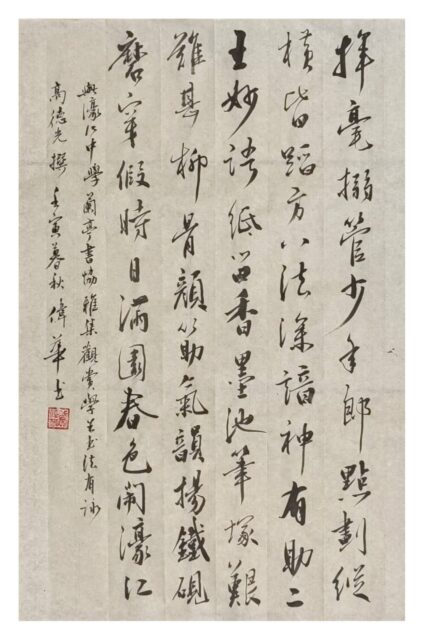 揮毫搦管少年郎點劃縱
橫皆蹈方八法深諳神有助二
王妙語紙留香墨池筆塚艱
難甚柳骨顏筋氣韻揚鐵硯
磨穿假時日滿園春色鬧濠江
與濠江中學蘭亭書協雅集觀賞學生書法有詠
高德光撰壬寅暮秋偉華書